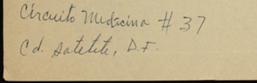 Circuito Medicina # 37
Cd. Satelite, D.F.